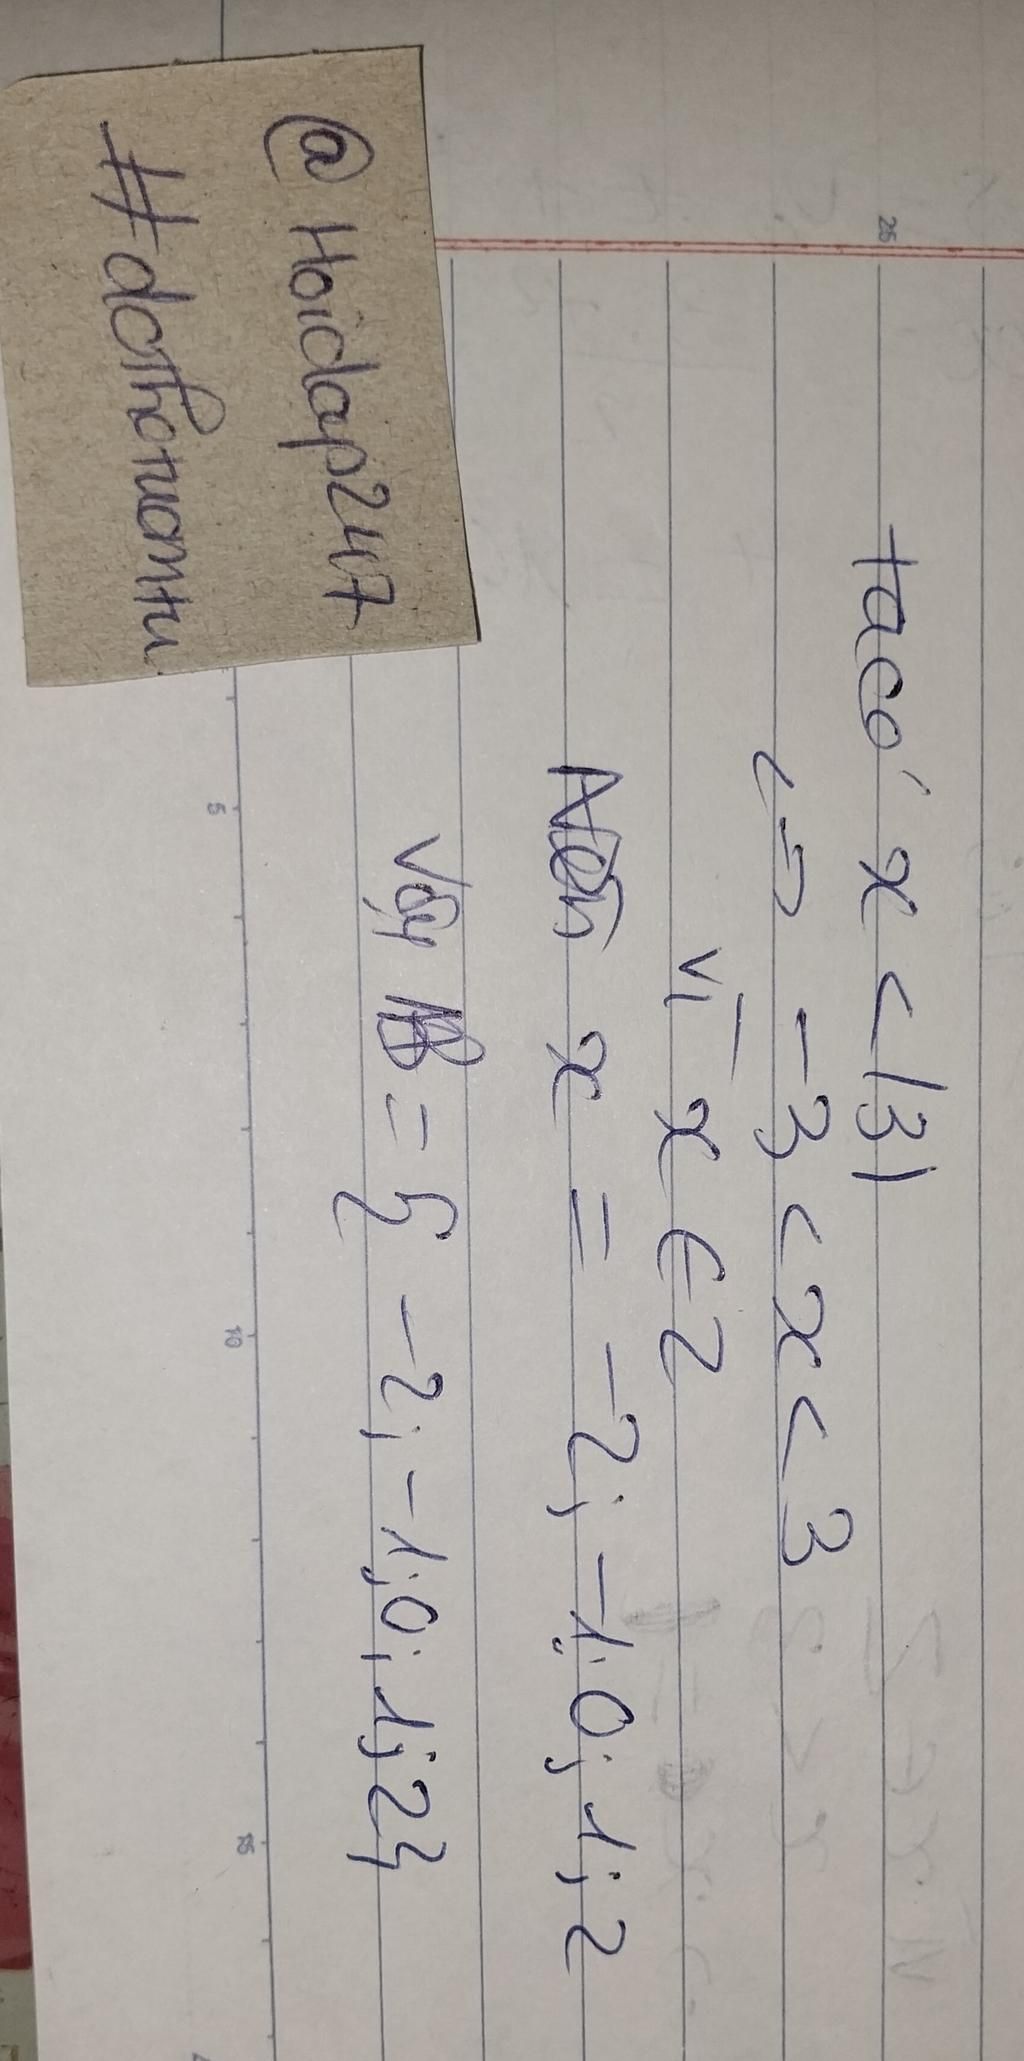 ta có x < |3|
<-> -3 < x < 3
Vì x ∈ Z
Nên x = -2; -1; 0; 1; 2
Vậy B = { -2; -1; 0; 1; 2}
@Hoidap247
#dothotuantu
25
5
10
15